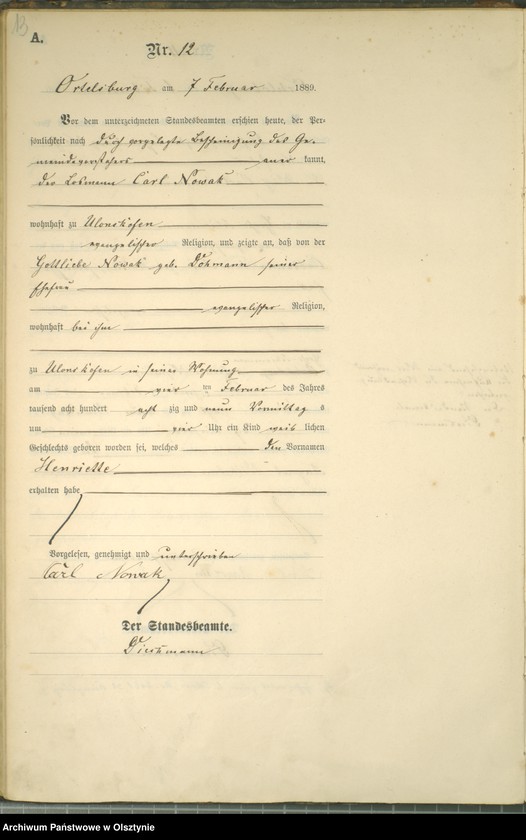 13
A.
Nr. 12
Ortelsburg am 7 Februar 1889.
Vor dem unterzeichneten Standesbeamten erschien heute, der Per-
sönlichkeit nach durch vorgelegte Bescheinigung des Ge-
meindevorstehers aner kannt,
der Losmann Carl Nowak
wohnhaft zu
evangelischer Religion, und zeigte an, daß von der
Gottliebe Nowak geb. seiner
Ehefrau
evangelischer Religion,
wohnhaft bei ihm
zu in seiner Wohnung
am vier ten Februar des Jahres
tausend acht hundert acht zig und neun Vormittag s
um vier Uhr ein Kind weib lichen
Geschlechts geboren worden sei, welches den Vornamen
Henriette
erhalten habe
Vorgelesen, genehmigt und unterschrieben
Carl Nowak
Der Standesbeamte.
Archiwum Państwowe w Olsztynie